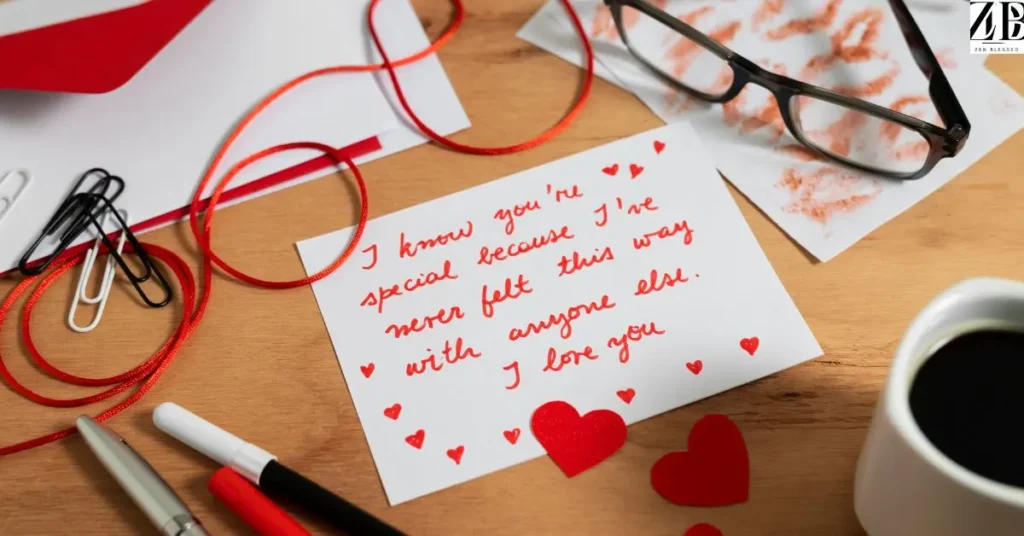 ZB
ZEN BLESSED
I know you're
special because I've
never felt this way
with anyone else.
I love you